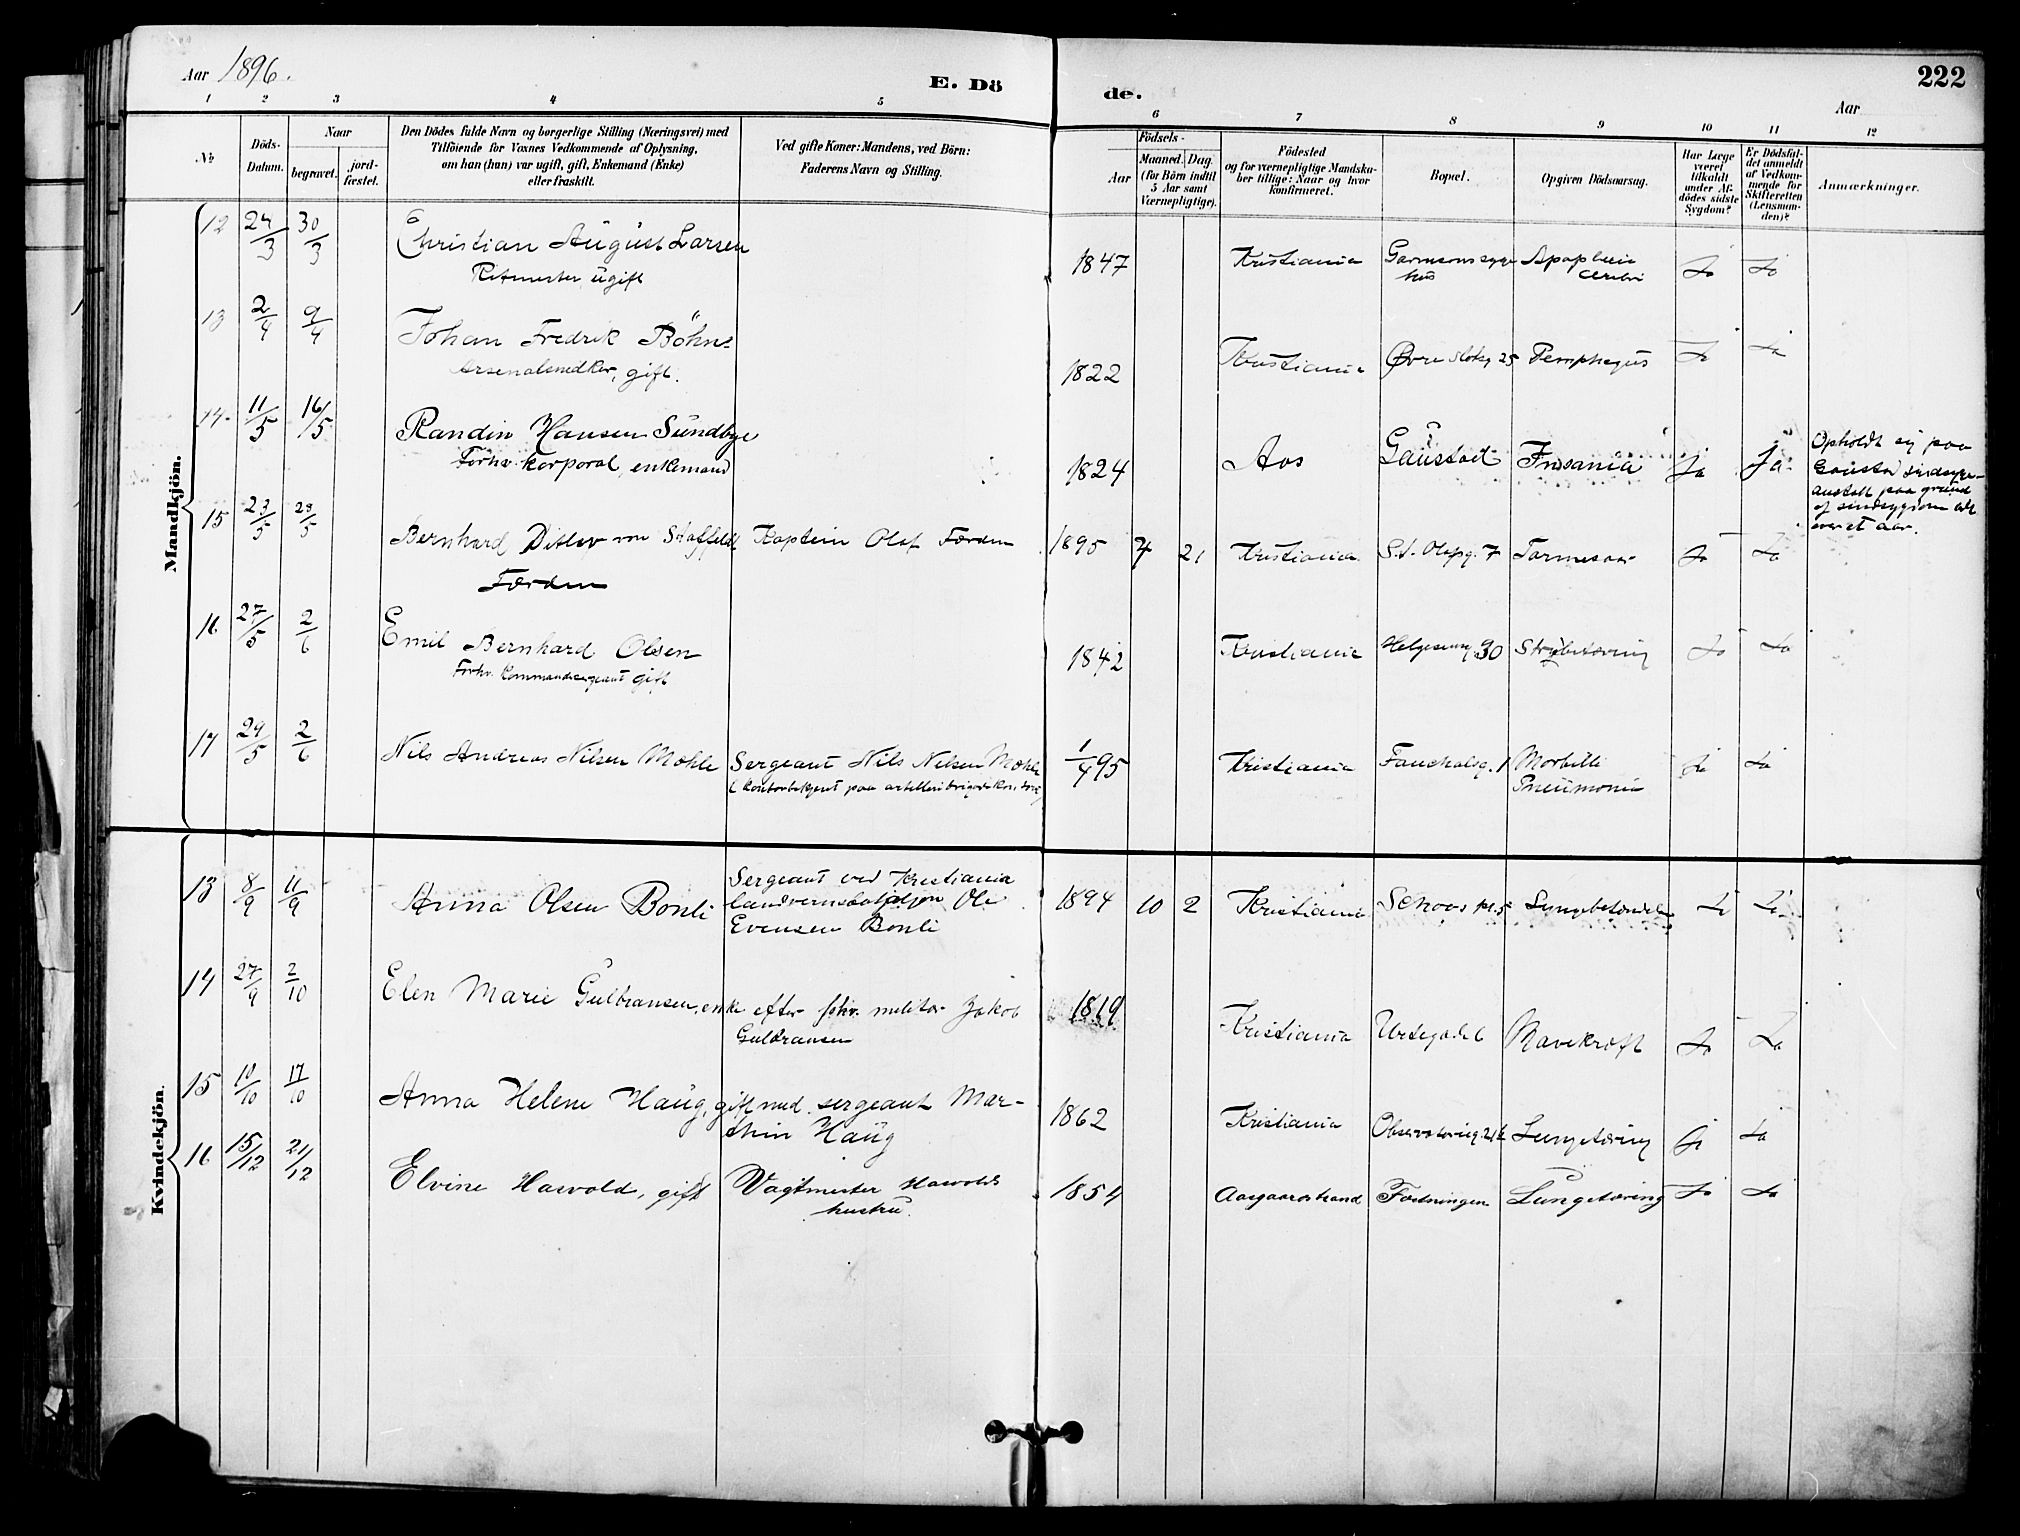 Aar 1896.
E. Dö
de.
222
Aar
1 2 3 4 5 6 7 8 9 10 11 12
№
Döds-
Datum.
Naar
begravet.
jord-
fæstet.
Den Dödes fulde Navn og borgerlige Stilling (Næringsvei) med
Tilföiende for Voxnes Vedkommende af Oplysning,
om han (hun) var ugift, gift, Enkemand (Enke)
eller fraskilt.
Ved gifte Koner: Mandens, ved Börn:
Faderens Navn og Stilling.
Födsels-
Aar
Maaned. Dag.
(for Börn indtil
5 Aar samt
Værnepligtige).
Födested
og for værnepligtige Mandska-
ber tillige: Naar og hvor
konfirmeret.
Bopæl.
Opgiven Dödsaarsag.
Har Læge
været
tilkaldt
under Af-
dödes sidste
Sygdom?
Er Dödsfal-
det anmeldt
af Vedkom-
mende for
Skifteretten
(Lensman-
den)?
Anmærkninger.
Mandkjön.
12 24/3 30/3 Christian August Larsen 1847 Kristiania Garnisonssyge Apoplexia Ja Ja
Ritmester, ugift hus cerebri
13 2/4 9/4 Johan Fredrik Böhn 1822 Kristiania Øvre Slotsg 25 Pemphegus Ja Ja
Arsenalsnedker, gift.
14 11/5 16/5 Randin Hansen Sundbye 1824 Aas Gaustad Insania Ja Ja
Forhv. korporal, enkemand
Opholdt sig paa
Gaustad sindsyge-
anstalt paa grund
af sindsygdom
over et aar.
15 23/5 28/5 Bernhard Ditlev von Staffeldt Kaptein Olaf Færden 1895 4 21 Kristiania St. Olafsg. 7 Ja Ja
Færden
16 27/5 2/6 Emil Bernhard Olsen 1842 Kristiania Helgesensg. 30 Strubetæring Ja Ja
Forhv. Kommandersergeant gift
17 29/5 2/6 Nils Andreas Nilsen Mæhle Sergeant Nils Nilsen Mæhle 1/4 95 Kristiania Fauchalsg. 1 Morbilli Ja Ja
Pneumonia
Kvindekjön.
13 8/9 11/9 Anna Olsen Bonli Sergeant ved Kristiania
landvernsbataljon Ole
Evensen Bonli 1894 10 2 Kristiania Schous pl. 5 Lungebetændelse Ja Ja
14 27/9 2/10 Elen Marie Gulbransen, enke efter fhv. militær Jakob
Gulbransen 1819 Kristiania Mavekræft Ja Ja
15 10/10 17/10 Anna Helene Haug, gift med sergeant Mar-
thin Haug 1862 Kristiania Lungetæring Ja Ja
16 15/12 21/12 Elvine Havold, gift Vagtmester Havolds
hustru. 1854 Aasgaardstrand Fæstningen Lungetæring Ja Ja